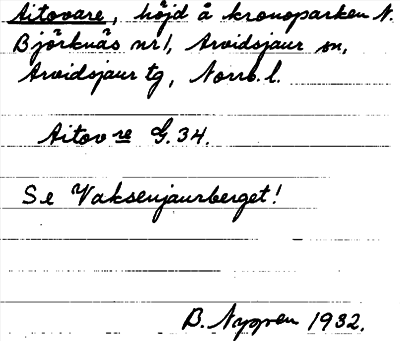 Aitovare, höjd å kronoparken N.
Björknäs nr 1, Arvidsjaur sn,
Arvidsjaur tg, Norrb. l.
Aitovre G. 34.
Se Vaksenjaurberget!
B. Nygren 1932.